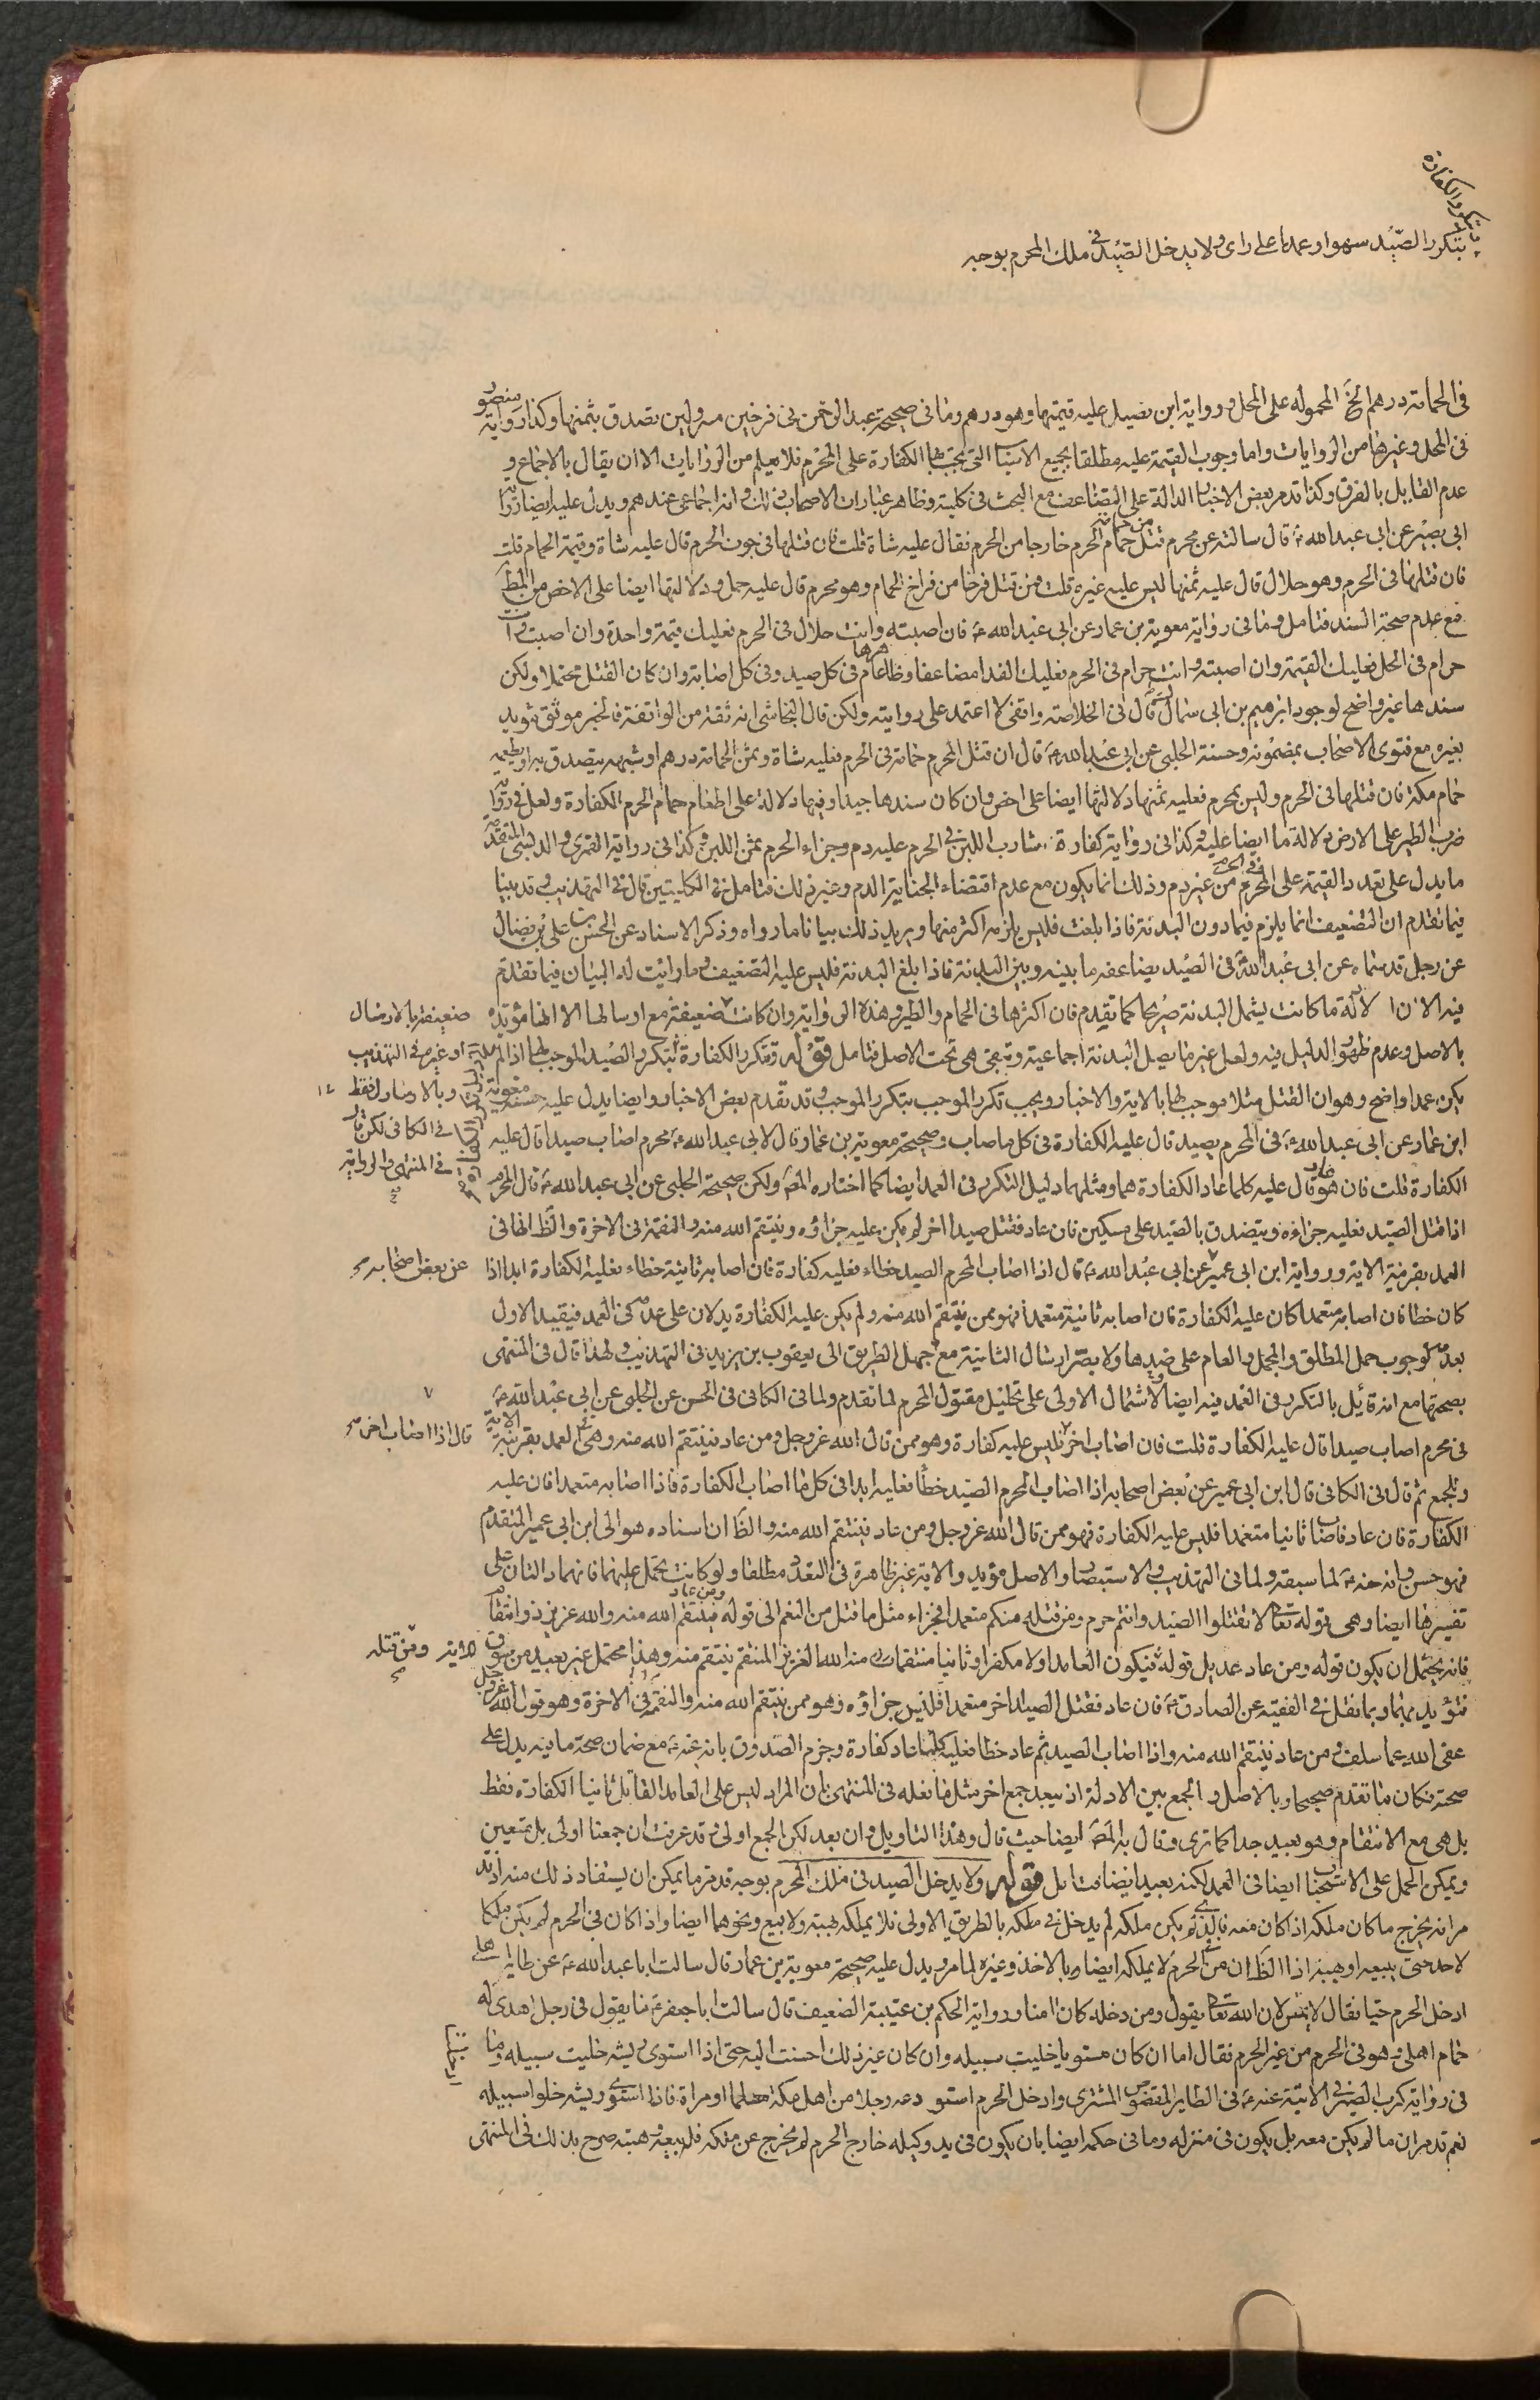 يتكرر الكفارة
بتكرر الصّيد سهوا وعمدا على راى ولا يدخل الصّيد فى ملك المحرم بوجه
فى الحمامة درهم الخ المحموله على المحل ورواية ابن فضيل عليه قيمتها وهو درهم وما فى صحيحة عبد الرحمن فى فرخين مسرولين تصدق بثمنها وكذا رواية منصور
فى المحل وغيرها من الروايات واما وجوب القيمة عليه مطلقا بجميع الاسباب التى يجب بها الكفارة على المحرم فلا يعلم من الروايات الا ان يقال بالاجماع و
عدم القايل بالفرق وكذا قد مر بعض الاخبار الدالة على التضاعف مع البحث فى كلية وظاهر عبارات الاصحاب ذلك وانه اجماعى عندهم ويدل عليه ايضا رواية
ابى بصير عن ابى عبد الله ع قال سالته عن محرم قتل حمامة من حمام الحرم خارجا من الحرم فقال عليه شاة قلت فان قتلها فى جوف الحرم قال عليه شاة وقيمة الحمام قلت
فان قتلها فى الحرم وهو حلال قال عليه ثمنها ليس عليه غيره قلت فمن قتل فرخا من فراخ الحمام وهو محرم قال عليه حمل ودلالتها ايضا على الاخص من المط
مع عدم صحة السند فتامل وما فى رواية معوية بن عمار عن ابى عبد الله ع فان اصبته وانت حلال فى الحرم فعليك قيمة واحدة وان اصبته وانت
حرام فى الحل فعليك القيمة وان اصبته وانت حرام فى الحرم فعليك الفدا مضاعفا وظاهرها عام فى كل صيد وفى كل اصابة وان كان القتل محتملا ولكن
سندها غير واضح لوجود ابرهيم بن ابى سمال قال فى الخلاصة واقفى لا اعتمد على روايته ولكن قال النجاشى انه ثقة من الواقفة فالخبر موثق مؤيد
بغيره مع فتوى الاصحاب بمضمونه وحسنة الحلبى عن ابى عبد الله ع قال ان قتل المحرم حمامة فى الحرم فعليه شاة وثمن الحمامة درهم او شبهه يتصدق به او يطعمه
حمام مكة فان قتلها فى الحرم وليس بمحرم فعليه ثمنها ودلالتها ايضا على اخص وان كان سندها جيدا وفيها دلالة على اطعام حمام الحرم الكفارة ولعل فى رواية
ضرب الطير على الارض دلالة ما ايضا عليه وكذا فى رواية كفارة شارب اللبن فى الحرم عليه دم وجزاء الحرم ثمن اللبن وكذا فى رواية القمرى والدبسى المتقدمة
ما يدل على تعدد القيمة على المحرم فى الحرم من غير دم وذلك انما يكون مع عدم اقتضاء الجناية الدم وغير ذلك فتامل فى الكليتين قال فى التهذيب قد بينا
فيما تقدم ان التضعيف انما يلزم فيما دون البدنة فاذا بلغت فليس يلزمه اكثر منها ويزيد ذلك بيانا ما رواه وذكر الاسناد عن الحسن بن على بن فضال
عن رجل قد سماه عن ابى عبد الله ع فى الصّيد يضاعفه ما بينه وبين البدنة فاذا بلغ البدنة فليس عليه التضعيف وما رايت له البيان فيما تقدم
فيه الان الادلة ما كانت يشمل البدنة صريحا كما تقدم فان اكثرها فى الحمام والطير وهذه الرواية وان كانت ضعيفة مع ارسالها الا انها مؤيدة
بالاصل وعدم ظهور الدليل فيه ولعل غير ما يصل البدنة اجماعية وتبقى هى تحت الاصل فتامل قوله وتتكرر الكفارة بتكرر الصّيد الموجب لها اذا لم
يكن عمدا واضح وهو ان القتل مثلا موجب لها بالاية والاخبار ويجب تكرر الموجب بتكرر الموجب وقد تقدم بعض الاخبار وايضا يدل عليه حسنة معوية
ابن عمار عن ابى عبد الله ع فى المحرم يصيد قال عليه الكفارة فى كل ما اصاب وصحيحة معوية بن عمار قال لابى عبد الله ع محرم اصاب صيدا قال عليه
الكفارة قلت فان هو عاد قال عليه كلما عاد الكفارة هما ومثلهما دليل التكرر فى العمد ايضا كما اختاره المصّ ولكن صحيحة الحلبى عن ابى عبد الله ع قال المحرم
اذا قتل الصّيد فعليه جزاءه ويتصدق بالصّيد على مسكين فان عاد فقتل صيدا اخر لم يكن عليه جزاؤه وينتقم الله منه والنقمة فى الاخرة والظ انها فى
العمد بقرينة الاية ورواية ابن ابى عمير عن ابى عبد الله ع قال اذا اصاب المحرم الصيد خطاء فعليه كفارة فان اصابه ثانية خطاء فعليه الكفارة ابدا اذا
كان خطا فان اصابه متعمدا كان عليه الكفارة فان اصابه ثانية متعمدا فهو ممن ينتقم الله منه ولم يكن عليه الكفارة يدلان على عدمه فى العمد فيقيد الاول
بعدمه لوجوب حمل المطلق والمجمل والعام على ضدها ولا يضر ارسال الثانية مع جهل الطريق الى يعقوب بن يزيد فى التهذيب ولهذا قال فى المنتهى
بصحتها مع انه قائل بالتكرر فى العمد فيه ايضا لاشتمال الاولى على تحليل مقتول المحرم لما تقدم ولما فى الكافى فى الحسن عن الحلبى عن ابى عبد الله ع
فى محرم اصاب صيدا قال عليه الكفارة قلت فان اصاب اخر فليس عليه كفارة وهو ممن قال الله عز وجل ومن عاد فينتقم الله منه وهى فى العمد بقرينة الاية
وللجمع ثم قال فى الكافى قال ابن ابى عمير عن بعض اصحابه اذا اصاب المحرم الصيد خطأ فعليه ابدا فى كل ما اصاب الكفارة فاذا اصابه متعمدا فان عليه
الكفارة فان عاد فاصاب ثانيا متعمدا فليس عليه الكفارة فهو ممن قال الله عز وجل ومن عاد فينتقم الله منه والظ ان اسناده هو الى ابن ابى عمير المتقدم
فهو حسن وانه عنه ع لما سبقه ولما فى التهذيب والاستبصار والاصل مؤيد والاية غير ظاهرة فى التعدد مطلقا ولو كانت يحمل عليهما فانهما دالتان على
تفسيرها ايضا وهى قوله تعالى لا تقتلوا الصّيد وانتم حرم ومن قتله منكم متعمدا فجزاء مثل ما قتل من النعم الى قوله ومن عاد فينتقم الله منه والله عزيز ذو انتقام
فانه يحتمل ان يكون قوله ومن عاد عديل قوله فيكون العامد اولا مكفرا وثانيا منتقما منه الله العزيز المنتقم ينتقم منه وهذا محتمل غير بعيد من سوق
فتؤيد بهما وبما نقل فى الفقيه عن الصادق ع فان عاد فقتل الصيد اخر متعمدا فليس جزاؤه وهو ممن ينتقم الله منه والنقمة فى الاخرة وهو قول الله عز وجل
عفى الله عما سلف ومن عاد فينتقم الله منه واذا اصاب الصيد ثم عاد خطا فعليه كلما عاد كفارة وجزم الصدوق بانه عنه ع مع ضمان صحة ما فيه يدل على
صحته فكان ما تقدم صحيحا وبالاصل والجمع بين الادلة اذ يبعد جمع اخر مثل ما فعله فى المنتهى بان المراد ليس على العامد القاتل ثانيا الكفارة فقط
بل هى مع الانتقام وهو بعيد جدا كما ترى وقال به المصّ ايضا حيث قال وهذا التاويل وان بعد لكن الجمع اولى وقد عرفت ان جمعنا اولى بل متعين
ويمكن الحمل على الاستحباب ايضا فى العمد لكنه بعيد ايضا فتامل قوله ولا يدخل الصيد فى ملك المحرم بوجه قد مر ما يمكن ان يستفاد ذلك منه اذ قد
مر انه يخرج ما كان ملكه اذا كان معه فالذى لم يكن ملكه لم يدخل فى ملكه بالطريق الاولى فلا يملكه بهبة ولا بيع ونحوهما ايضا واذا كان فى الحرم لم يكن ملكا
لاحد حتى يبيعه او يهبه اذ الظ ان من فى الحرم لا يملكه ايضا وبالاخذ وغيره لما مر ويدل عليه صحيحة معوية بن عمار قال سالت ابا عبد الله ع عن طاير اهلى
ادخل الحرم حيا فقال لا يمس لان الله تعالى يقول ومن دخله كان امنا ورواية الحكم بن عتيبة الضعيف قال سالت ابا جعفر ع ما يقول فى رجل اهدى له
حمام اهلى وهو فى الحرم من غير الحرم فقال اما ان كان مستويا خليت سبيله وان كان غير ذلك احسنت اليه حتى اذا استوى ريشه خليت سبيله وما
فى رواية كرب الصيرفى الاتية عنه ع فى الطاير المقصوص المشترى وادخل الحرم استودعه رجلا من اهل مكة مسلما او مراة فاذا استوى ريشه خلوا سبيله
نعم قد مر ان ما لم يكن معه بل يكون فى منزله وما فى حكمه ايضا بان يكون فى يد وكيله خارج الحرم لم يخرج عن ملكه فله بيعه وهبته صرح بذلك فى المنتهى
ضعيفة بالارسال
وغيره فى التهذيب
وبالارسال فقط
فى الكافى لكن قال
فى المنتهى والرواية
عن بعض اصحابه
قال اذا اصاب اخر
الاية ومن قتله